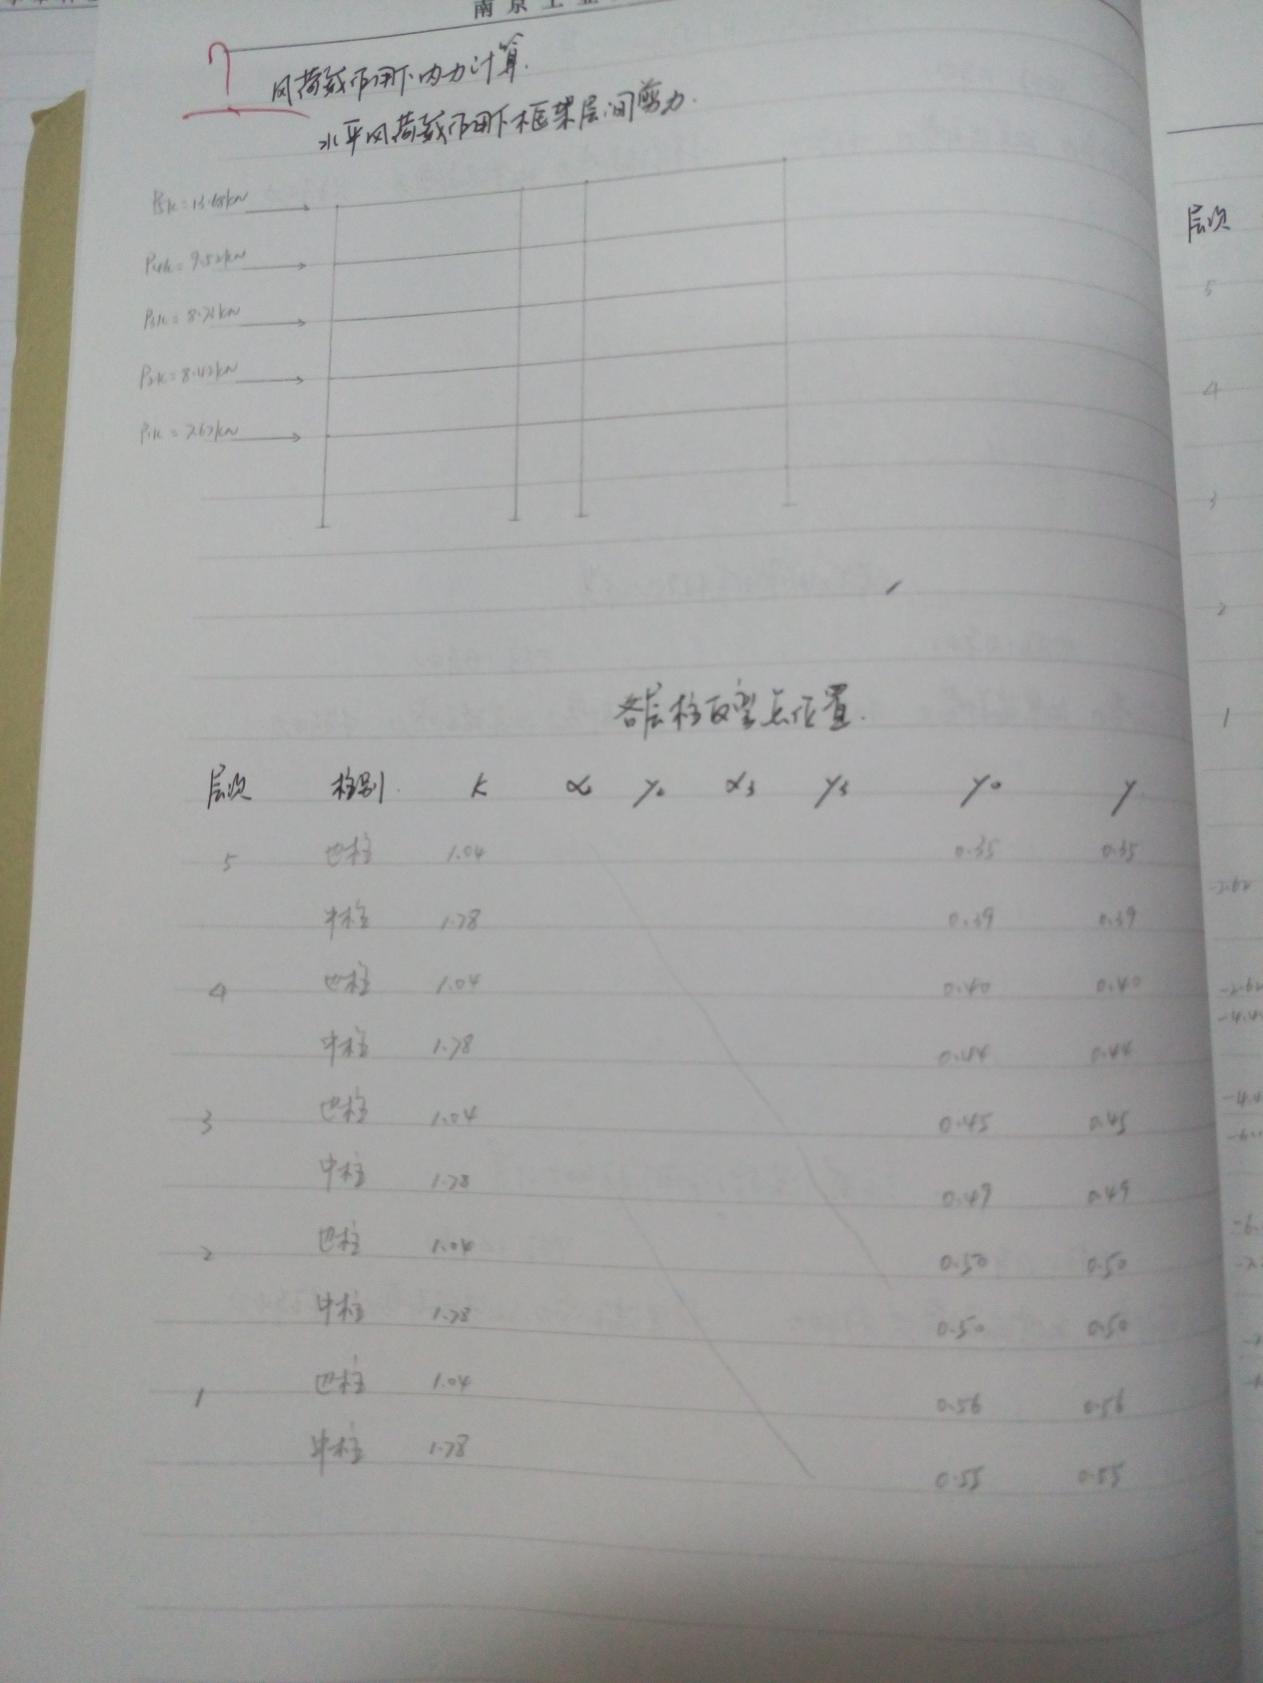 南京工业
7
风荷载作用下内力计算.
水平风荷载作用下框架层间剪力.
P5k=13.68kN
P4k=9.52kN
P3k=8.71kN
P2k=8.42kN
P1k=7.67kN
各层柱反弯点位置.
层次 柱别. K α₁ y₁ α₃ y₃ y₀ y
5 边柱 1.04 0.35 0.35
中柱 1.78 0.39 0.39
4 边柱 1.04 0.40 0.40
中柱 1.78 0.44 0.44
3 边柱 1.04 0.45 0.45
中柱 1.78 0.49 0.49
2 边柱 1.04 0.50 0.50
中柱 1.78 0.50 0.50
1 边柱 1.04 0.56 0.56
中柱 1.78 0.55 0.55
层次
5
4
3
2
1